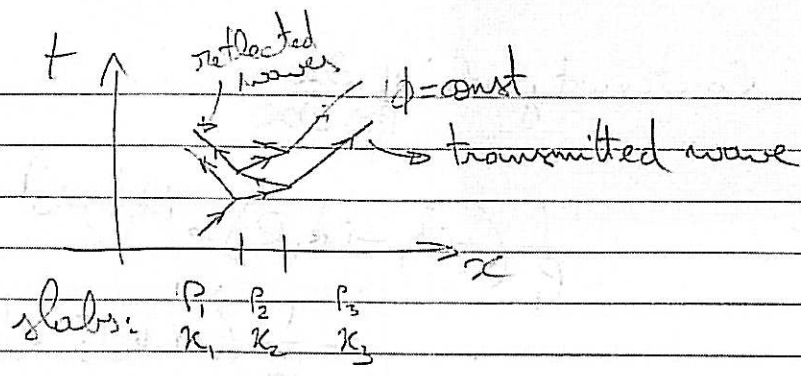 t
reflected
waves
ϕ=const
transmitted wave
x
slabs: ρ₁ ρ₂ ρ₃
κ₁ κ₂ κ₃